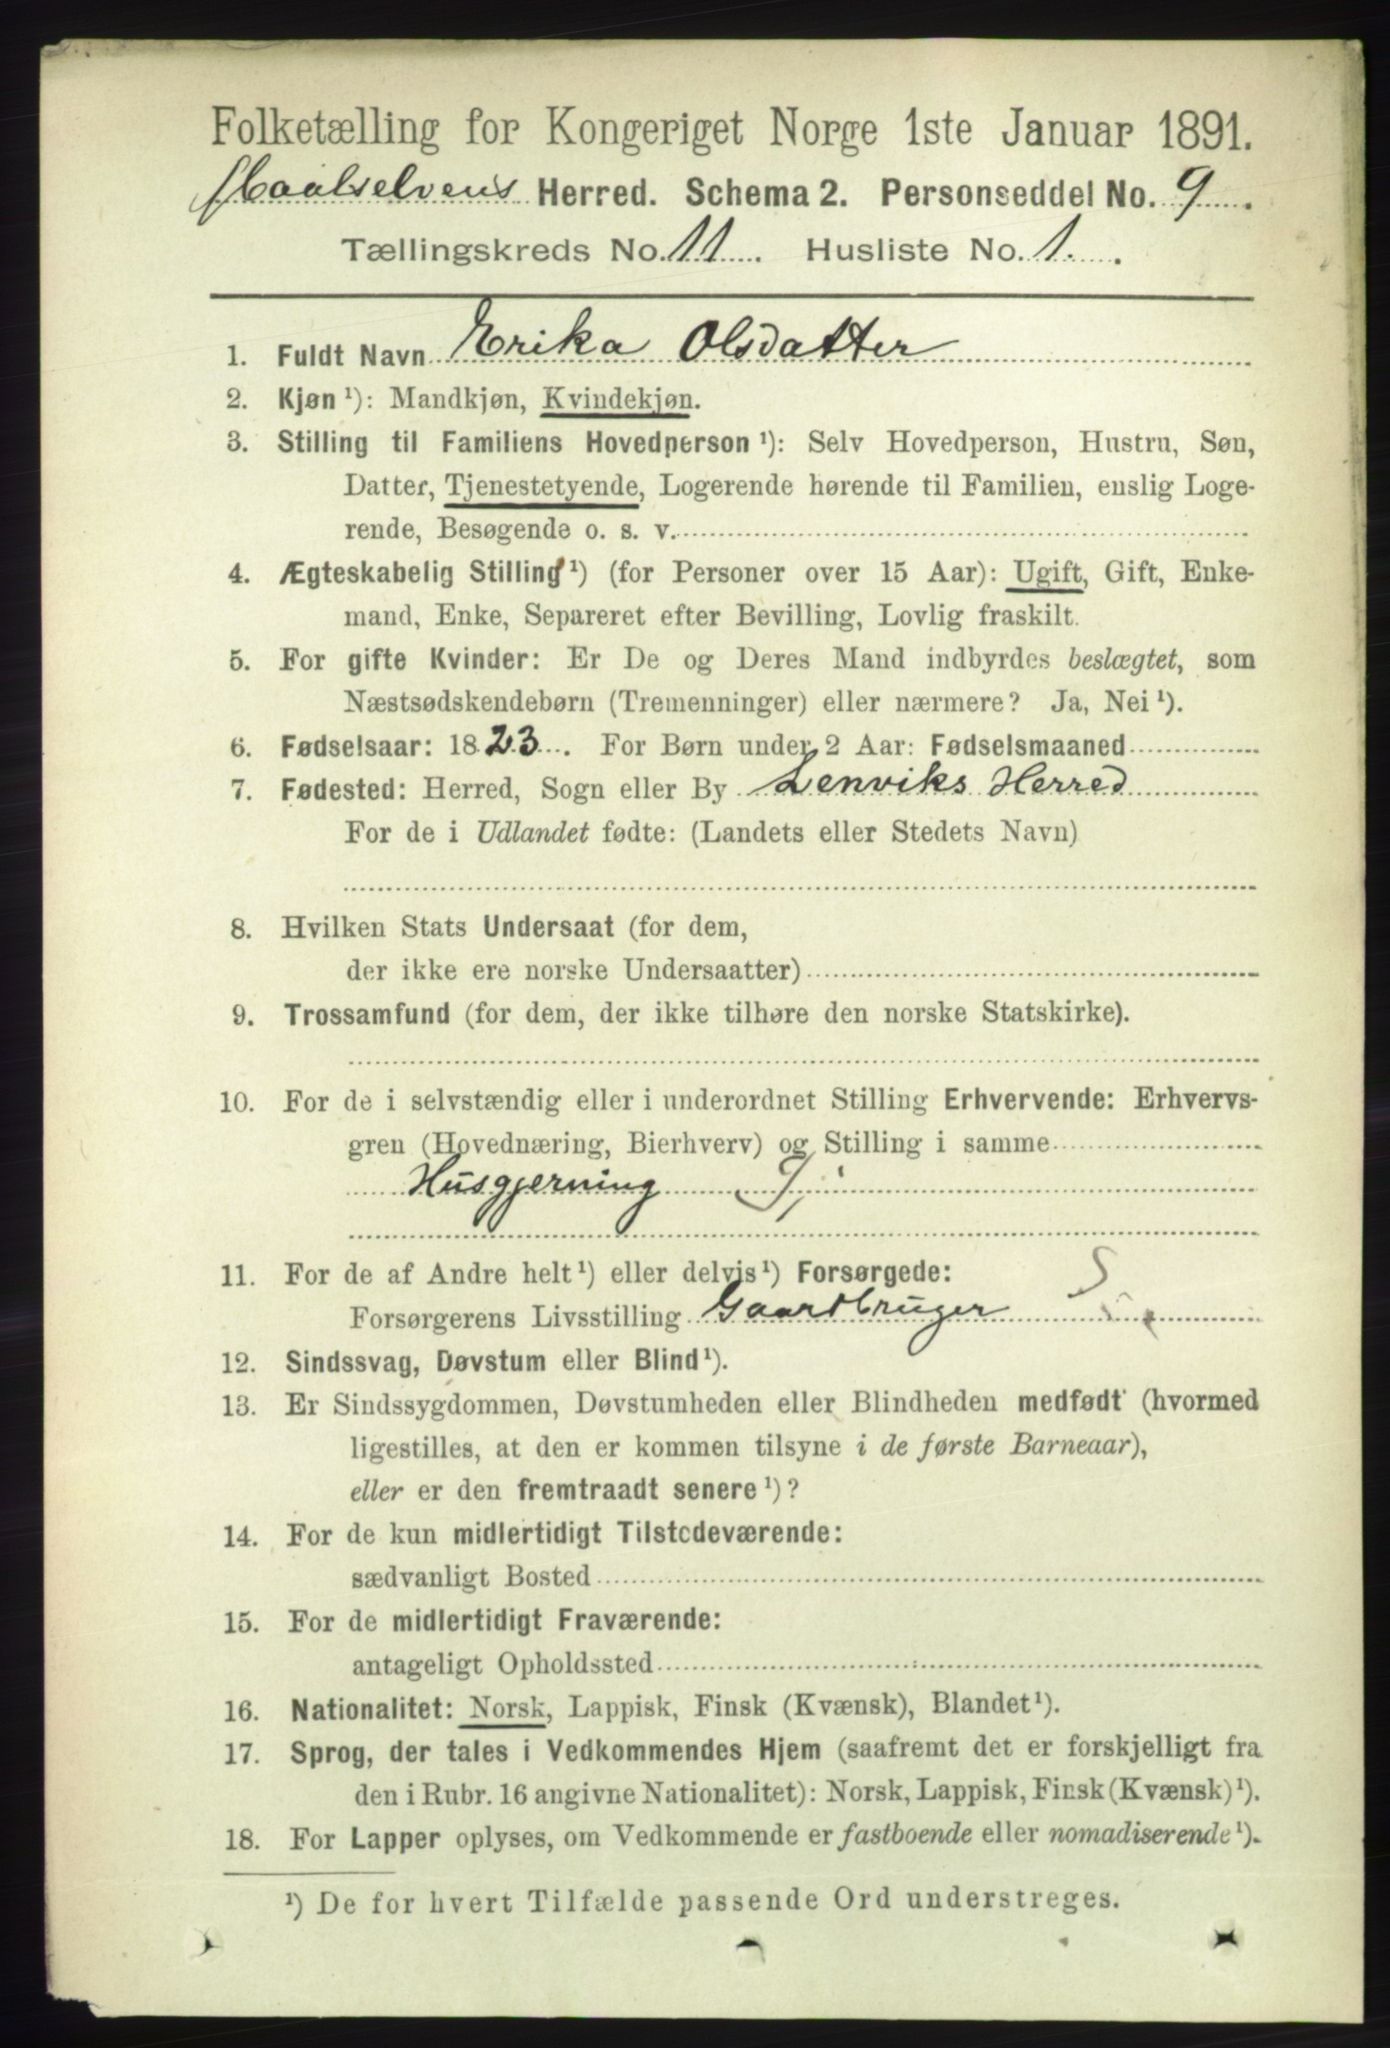 Folketælling for Kongeriget Norge 1ste Januar 1891.
Maalselvens Herred. Schema 2. Personseddel No. 9
Tællingskreds No. 11. Husliste No. 1.
1. Fuldt Navn Erika Olsdatter
2. Kjøn ¹): Mandkjøn, Kvindekjøn.
3. Stilling til Familiens Hovedperson ¹): Selv Hovedperson, Hustru, Søn,
Datter, Tjenestetyende, Logerende hørende til Familien, enslig Loge-
rende, Besøgende o. s. v.
4. Ægteskabelig Stilling ¹) (for Personer over 15 Aar): Ugift, Gift, Enke-
mand, Enke, Separeret efter Bevilling, Lovlig fraskilt.
5. For gifte Kvinder: Er De og Deres Mand indbyrdes beslægtet, som
Næstsødskendebørn (Tremenninger) eller nærmere? Ja, Nei ¹).
6. Fødselsaar: 1823. For Børn under 2 Aar: Fødselsmaaned
7. Fødested: Herred, Sogn eller By Lenviks Herred
For de i Udlandet fødte: (Landets eller Stedets Navn)
8. Hvilken Stats Undersaat (for dem,
der ikke ere norske Undersaatter)
9. Trossamfund (for dem, der ikke tilhøre den norske Statskirke).
10. For de i selvstændig eller i underordnet Stilling Erhvervende: Erhvervs-
gren (Hovednæring, Bierhverv) og Stilling i samme
Husgjerning
11. For de af Andre helt ¹) eller delvis ¹) Forsørgede:
Forsørgerens Livsstilling Gaardbruger S
12. Sindssvag, Døvstum eller Blind ¹).
13. Er Sindssygdommen, Døvstumheden eller Blindheden medfødt (hvormed
ligestilles, at den er kommen tilsyne i de første Barneaar),
eller er den fremtraadt senere ¹)?
14. For de kun midlertidigt Tilstedeværende:
sædvanligt Bosted
15. For de midlertidigt Fraværende:
antageligt Opholdssted
16. Nationalitet: Norsk, Lappisk, Finsk (Kvænsk), Blandet ¹).
17. Sprog, der tales i Vedkommendes Hjem (saafremt det er forskjelligt fra
den i Rubr. 16 angivne Nationalitet): Norsk, Lappisk, Finsk (Kvænsk) ¹).
18. For Lapper oplyses, om Vedkommende er fastboende eller nomadiserende ¹).
¹) De for hvert Tilfælde passende Ord understreges.